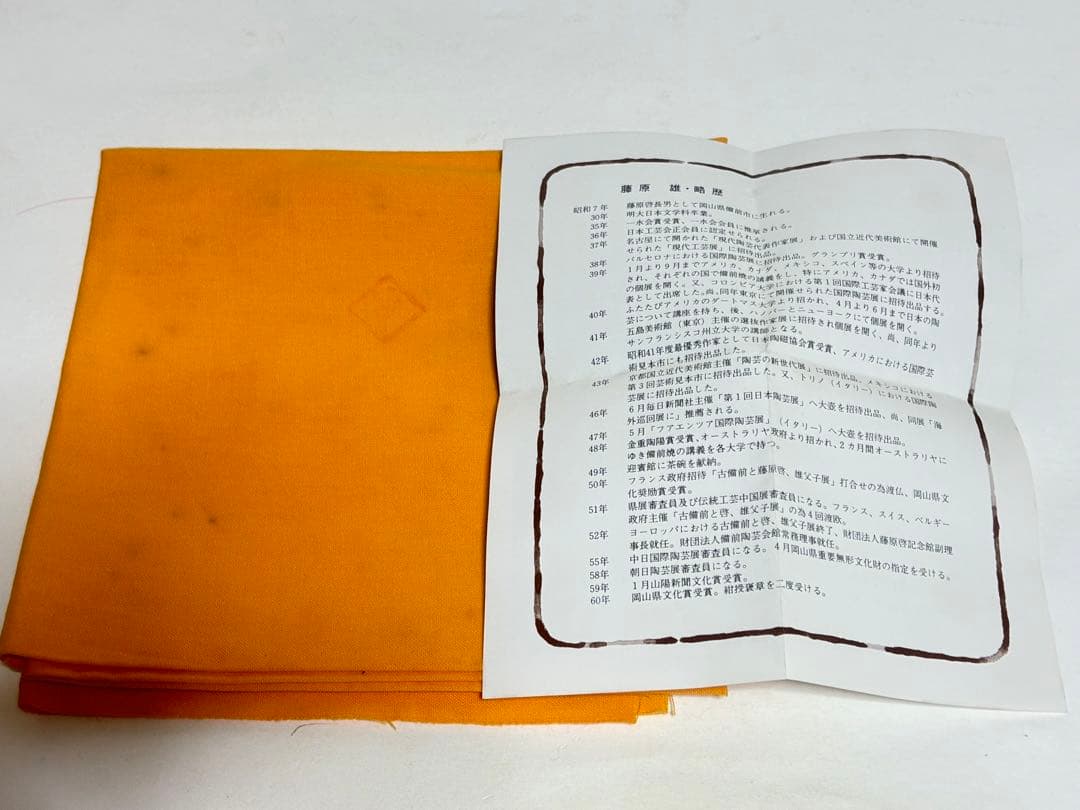 藤原 雄・略歴
昭和7年 藤原啓長男として岡山県備前市に生れる。
30年 明大日本文学科卒業。
35年 一水会賞受賞、一水会会員に推挙される。
36年 日本工芸会正会員に認定せられる。
37年 名古屋にて開かれた「現代陶芸代表作家展」および国立近代美術館にて開催
せられた「現代工芸展」に招待出品。
38年 バルセロナにおける国際陶芸展に招待出品。グランプリ賞受賞。
39年 1月より9月までアメリカ、カナダ、メキシコ、スペイン等の大学より招待
され、それぞれの国で備前焼の講義をし、特にアメリカ、カナダでは国外初
の個展を開く。又、コロンビア大学における第1回国際工芸家会議に日本代
表として出席した。尚、同年東京にて開催せられた国際陶芸展に招待出品する。
40年 ふたたびアメリカのダートマス大学より招かれ、4月より6月まで日本の陶
芸について講座を持ち、後、ハノーバーとニューヨークにて個展を開く。
41年 五島美術館(東京)主催の選抜作家展に招待され個展を開く、尚、同年より
サンフランシスコ州立大学の講師となる。
42年 昭和41年度最優秀作家として日本陶磁協会賞受賞、アメリカにおける国際芸
術見本市にも招待出品した。
43年 京都国立近代美術館主催「陶芸の新世代展」に招待出品、メキシコにおける
第3回芸術見本市に招待出品した。又、トリノ(イタリー)における国際陶
芸展に招待出品した。
46年 6月毎日新聞社主催「第1回日本陶芸展」へ大壺を招待出品、尚、同展「海
外巡回展に」推薦される。
47年 5月「フアエンツア国際陶芸展」(イタリー)へ大壺を招待出品。
48年 金重陶陽賞受賞、オーストラリヤ政府より招かれ、2カ月間オーストラリヤに
ゆき備前焼の講義を各大学で持つ。
49年 迎賓館に茶碗を献納。
50年 フランス政府招待「古備前と藤原啓、雄父子展」打合せの為渡仏、岡山県文
化奨励賞受賞。
51年 県展審査員及び伝統工芸中国展審査員になる。フランス、スイス、ベルギー
政府主催「古備前と啓、雄父子展」の為4回渡欧。
52年 ヨーロッパにおける古備前と啓、雄父子展終了、財団法人藤原啓記念館副理
事長就任。財団法人備前陶芸会館常務理事就任。
55年 中日国際陶芸展審査員になる。4月岡山県重要無形文化財の指定を受ける。
58年 朝日陶芸展審査員になる。
59年 1月山陽新聞文化賞受賞。
60年 岡山県文化賞受賞。紺授褒章を二度受ける。